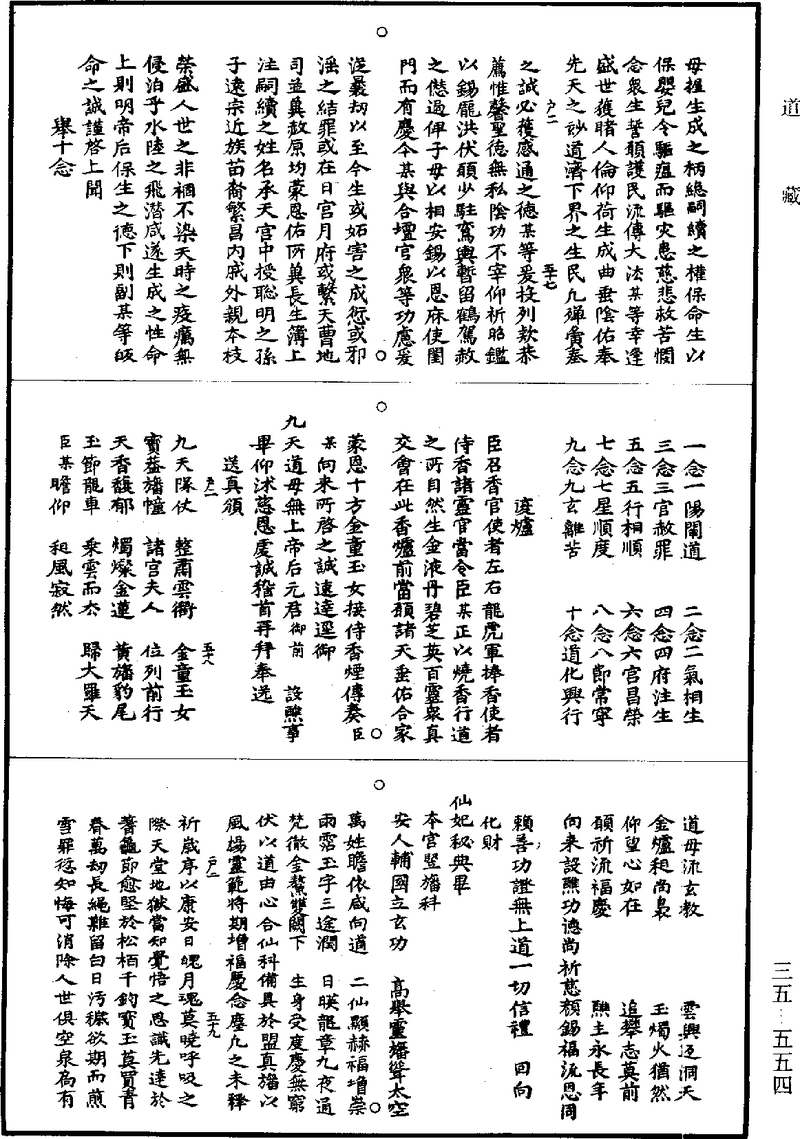 道藏
母握生成之柄總嗣續之權保命生以
保嬰兒令驅瘟而驅灾患慈悲救苦憫
念衆生誓願護民流傳大法某等幸逢
盛世獲睹人倫仰荷生成曲垂陰佑奉
先天之妙道濟下界之生民凡殫賫奏
之誠必獲感通之德某等爰投列欵恭
薦惟馨聖德無私陰功不宰仰祈昭鑑
以錫龎洪伏願少駐鸞輿暫留鶴駕赦
之愆過俾子母以相安錫以恩庥使閨
門而有慶今某與合壇官衆等功應爰
從曩劫以至今生或妬害之成愆或邪
滛之結罪或在日宮月府或繫天曹地
司並冀赦原均蒙恩佑所冀長生簿上
注嗣續之姓名承天宮中授聦明之孫
子遠宗近族苗裔繁昌内戚外親本枝
榮盛人世之非禍不染天時之疫癘無
侵泊乎水陸之飛潜咸遂生成之性命
上則明帝后保生之德下則副某等皈
命之誠謹啓上聞
舉十念
一念一陽闡道 二念二氣相生
三念三官赦罪 四念四府注生
五念五行相順 六念六官昌榮
七念七星順度 八念八節常寧
九念九玄離苦 十念道化興行
復爐
臣召香官使者左右龍虎軍捧香使者
侍香諸靈官當令臣某正以燒香行道
之所自然生金液丹碧芝英百靈衆真
交會在此香爐前當願諸天垂佑合家
蒙恩十方金童玉女接侍香煙傳奏臣
某向來所啓之誠遠達逕御
九天道母無上帝后元君御前 設醮事
畢仰沐慈恩虔誠稽首再拜奉送
送真頌
九天隊仗 整肅雲衢 金童玉女
寶葢旛幢 諸宮夫人 位列前行
天香馥郁 燭燦金蓮 黄旛豹尾
玉節龍車 乘雲而去 歸大羅天
臣某瞻仰 和風寂然
道母流玄教 雲興返洞天
金爐和尚裊 玉燭火猶然
仰望心如在 追攀志莫前
願祈流福慶 醮主永長年
向來設醮功德尚祈慈顔錫福流恩周
頼善功證無上道一切信禮 回向
化財
仙妃秘典畢
本宮竪旛科
安人輔國立玄功 高舉靈旛聳太空
萬姓瞻依咸向道 二仙顯赫福增崇
雨霑玉字三途潤 日暎龍章九夜通
梵徹金鰲雙闕下 生身受度慶無窮
伏以道由心合仙科備具於盟真旛以
風揚靈範將期增福慶念塵凡之未釋
祈歲序以康安日魄月瑰莫曉呼吸之
際天堂地獄當知覺悟之恩識先達於
蓍龜節愈堅於松栢千鈞寶玉莫買青
春萬劫長繩難留白日汚穢欲期而煎
雪罪愆知悔可消除人世俱空泉扃有
三五·五五四